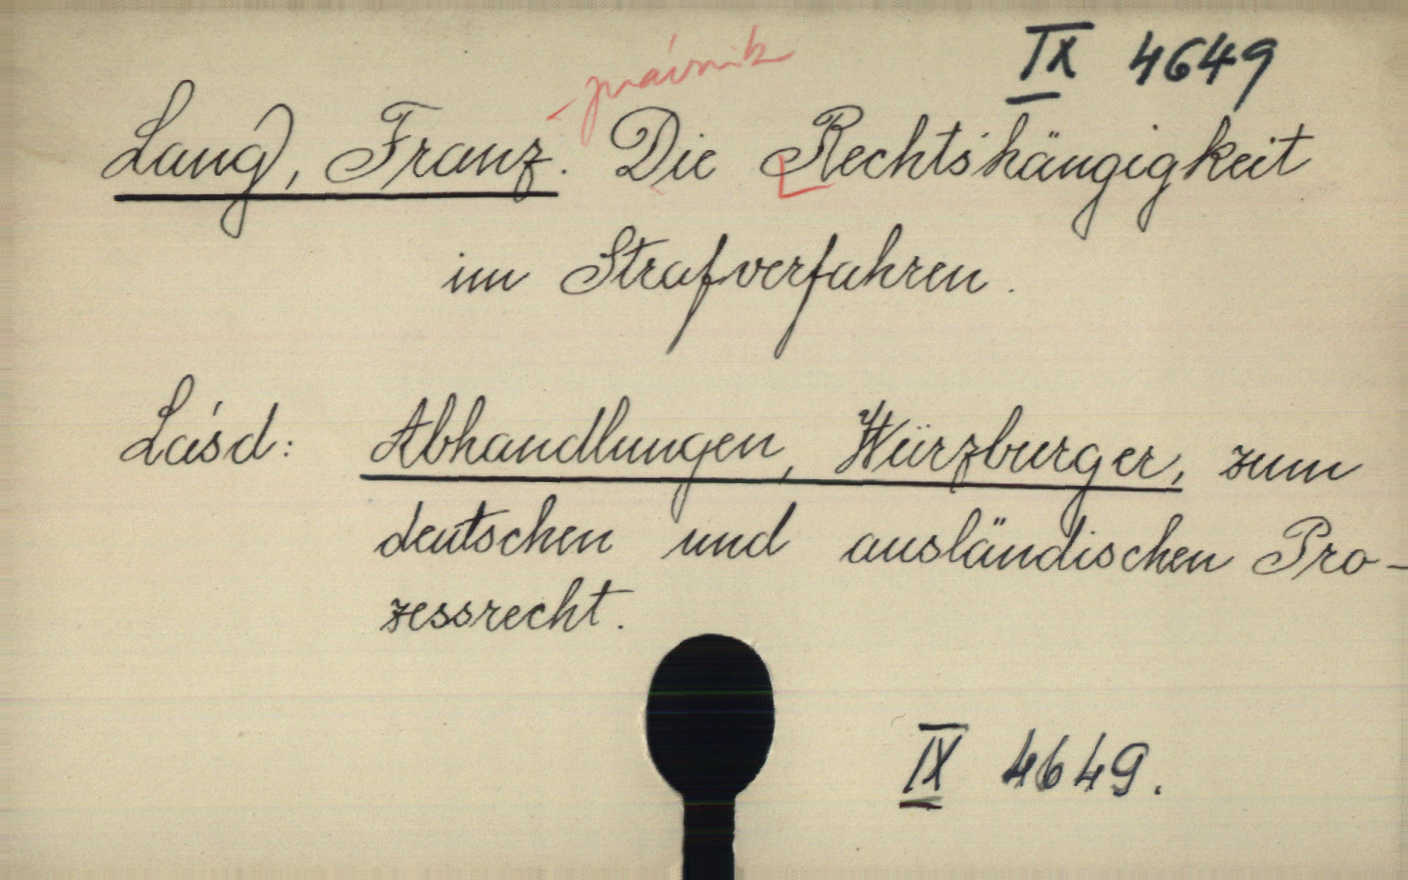 IX 4649
- právnik
Lang, Franz. Die Rechtshängigkeit
im Strafverfahren.
Lásd: Abhandlungen, Würzburger, zum
deutschen und ausländischen Pro-
zessrecht.
IX 4649.